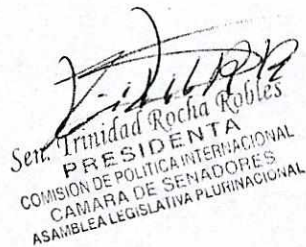 Sen. Trinidad Rocha Robles
PRESIDENTA
COMISION DE POLITICA INTERNACIONAL
CAMARA DE SENADORES
ASAMBLEA LEGISLATIVA PLURINACIONAL